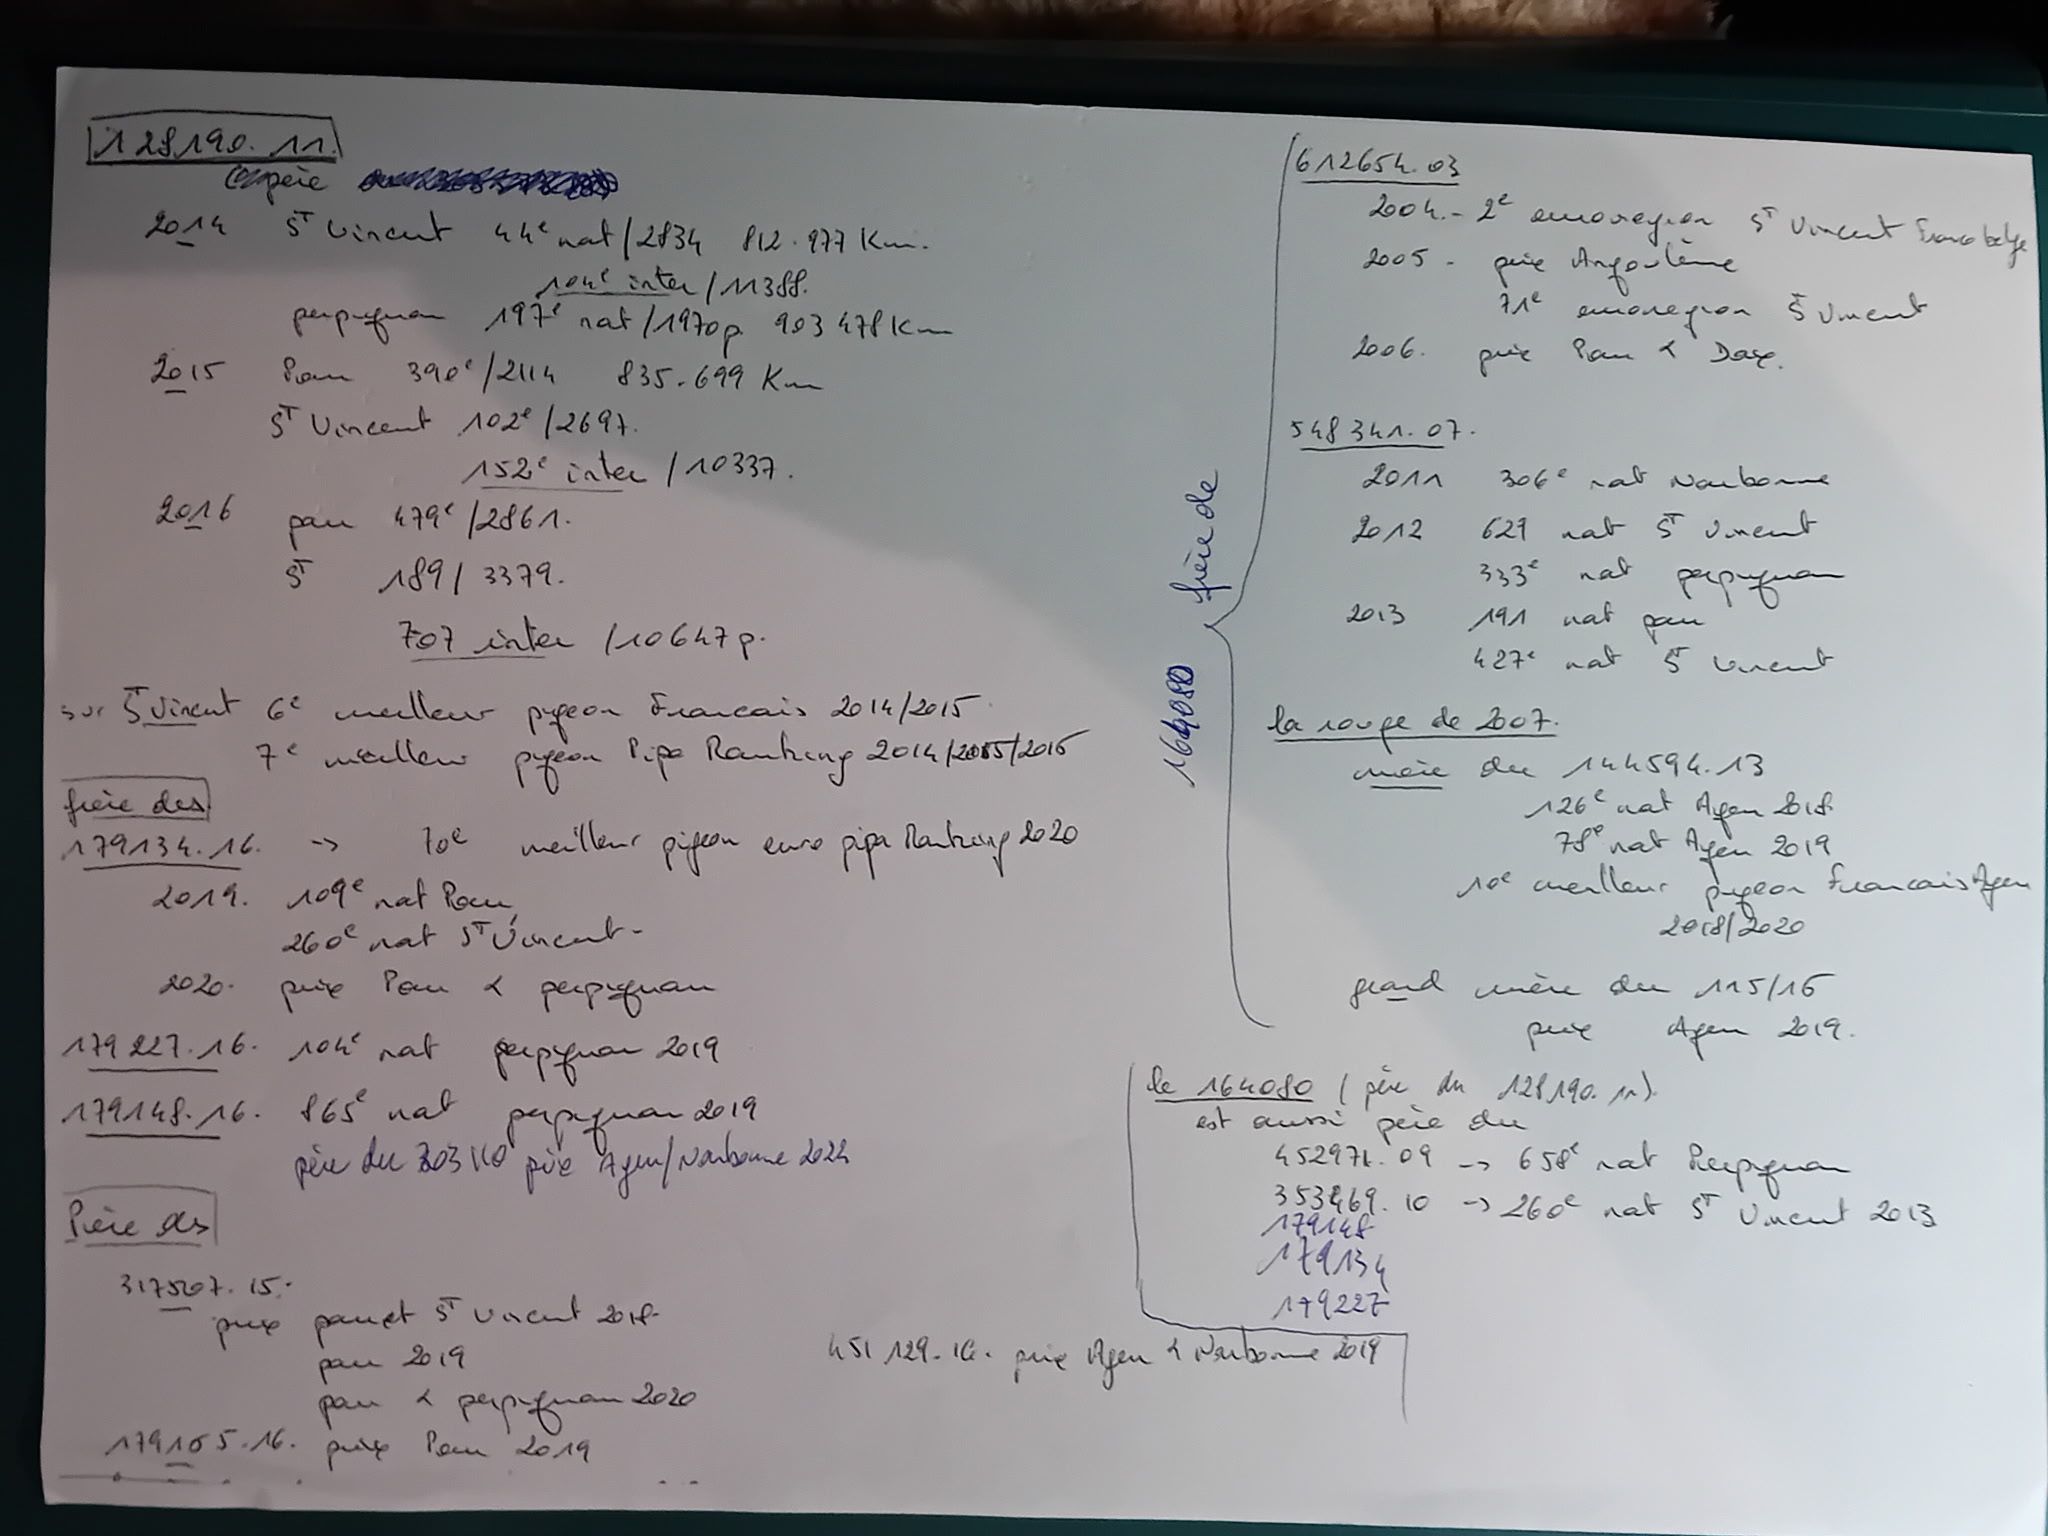 128190.11.
père
2014 St Vincent 44e nat/2834 812.977 Km.
104e inter/11388.
perpignan 197e nat/1970p 903 478 Km
2015 Pau 390e/2114 835.699 Km
St Vincent 102e/2697.
152e inter/10337.
2016 pau 479e/2861.
St 189/3379.
707 inter/10647p.
sur St Vincent 6e meilleur pigeon Francais 2014/2015
7e meilleur pigeon Pipa Ranking 2014/2015/2016
frère des
179134.16. -> 10e meilleur pigeon euro pipa Ranking 2020
2019. 109e nat Pau
260e nat St Vincent-
2020. prix Pau & perpignan
179227.16. 104e nat perpignan 2019
179148.16. 865e nat perpignan 2019
père du prix Agen/Narbonne 2024
Père des
317507.15.
prix pau et St Vincent 2018
pau 2019
pau & perpignan 2020
179105.16. prix Pau 2019
164080 frère de
612654.03
2004.- 2e euroregion St Vincent Franco belge
2005 - prix Angoulème
71e euroregion St Vincent
2006. prix Pau & Dax.
548341.07.
2011 306e nat Narbonne
2012 629 nat St Vincent
333e nat perpignan
2013 191 nat pau
427e nat St Vincent
la rouge de 2007.
mère du 144594.13
126e nat Agen 2018
78e nat Agen 2019
10e meilleur pigeon Francais Agen
2018/2020
grand mère du 115/16
prix Agen 2019.
le 164080 (père du 128190.11).
est aussi père du
452971.09 -> 658e nat Perpignan
353469.10 -> 260e nat St Vincent 2013
179148
179134
179227
451129.16. prix Agen & Narbonne 2019